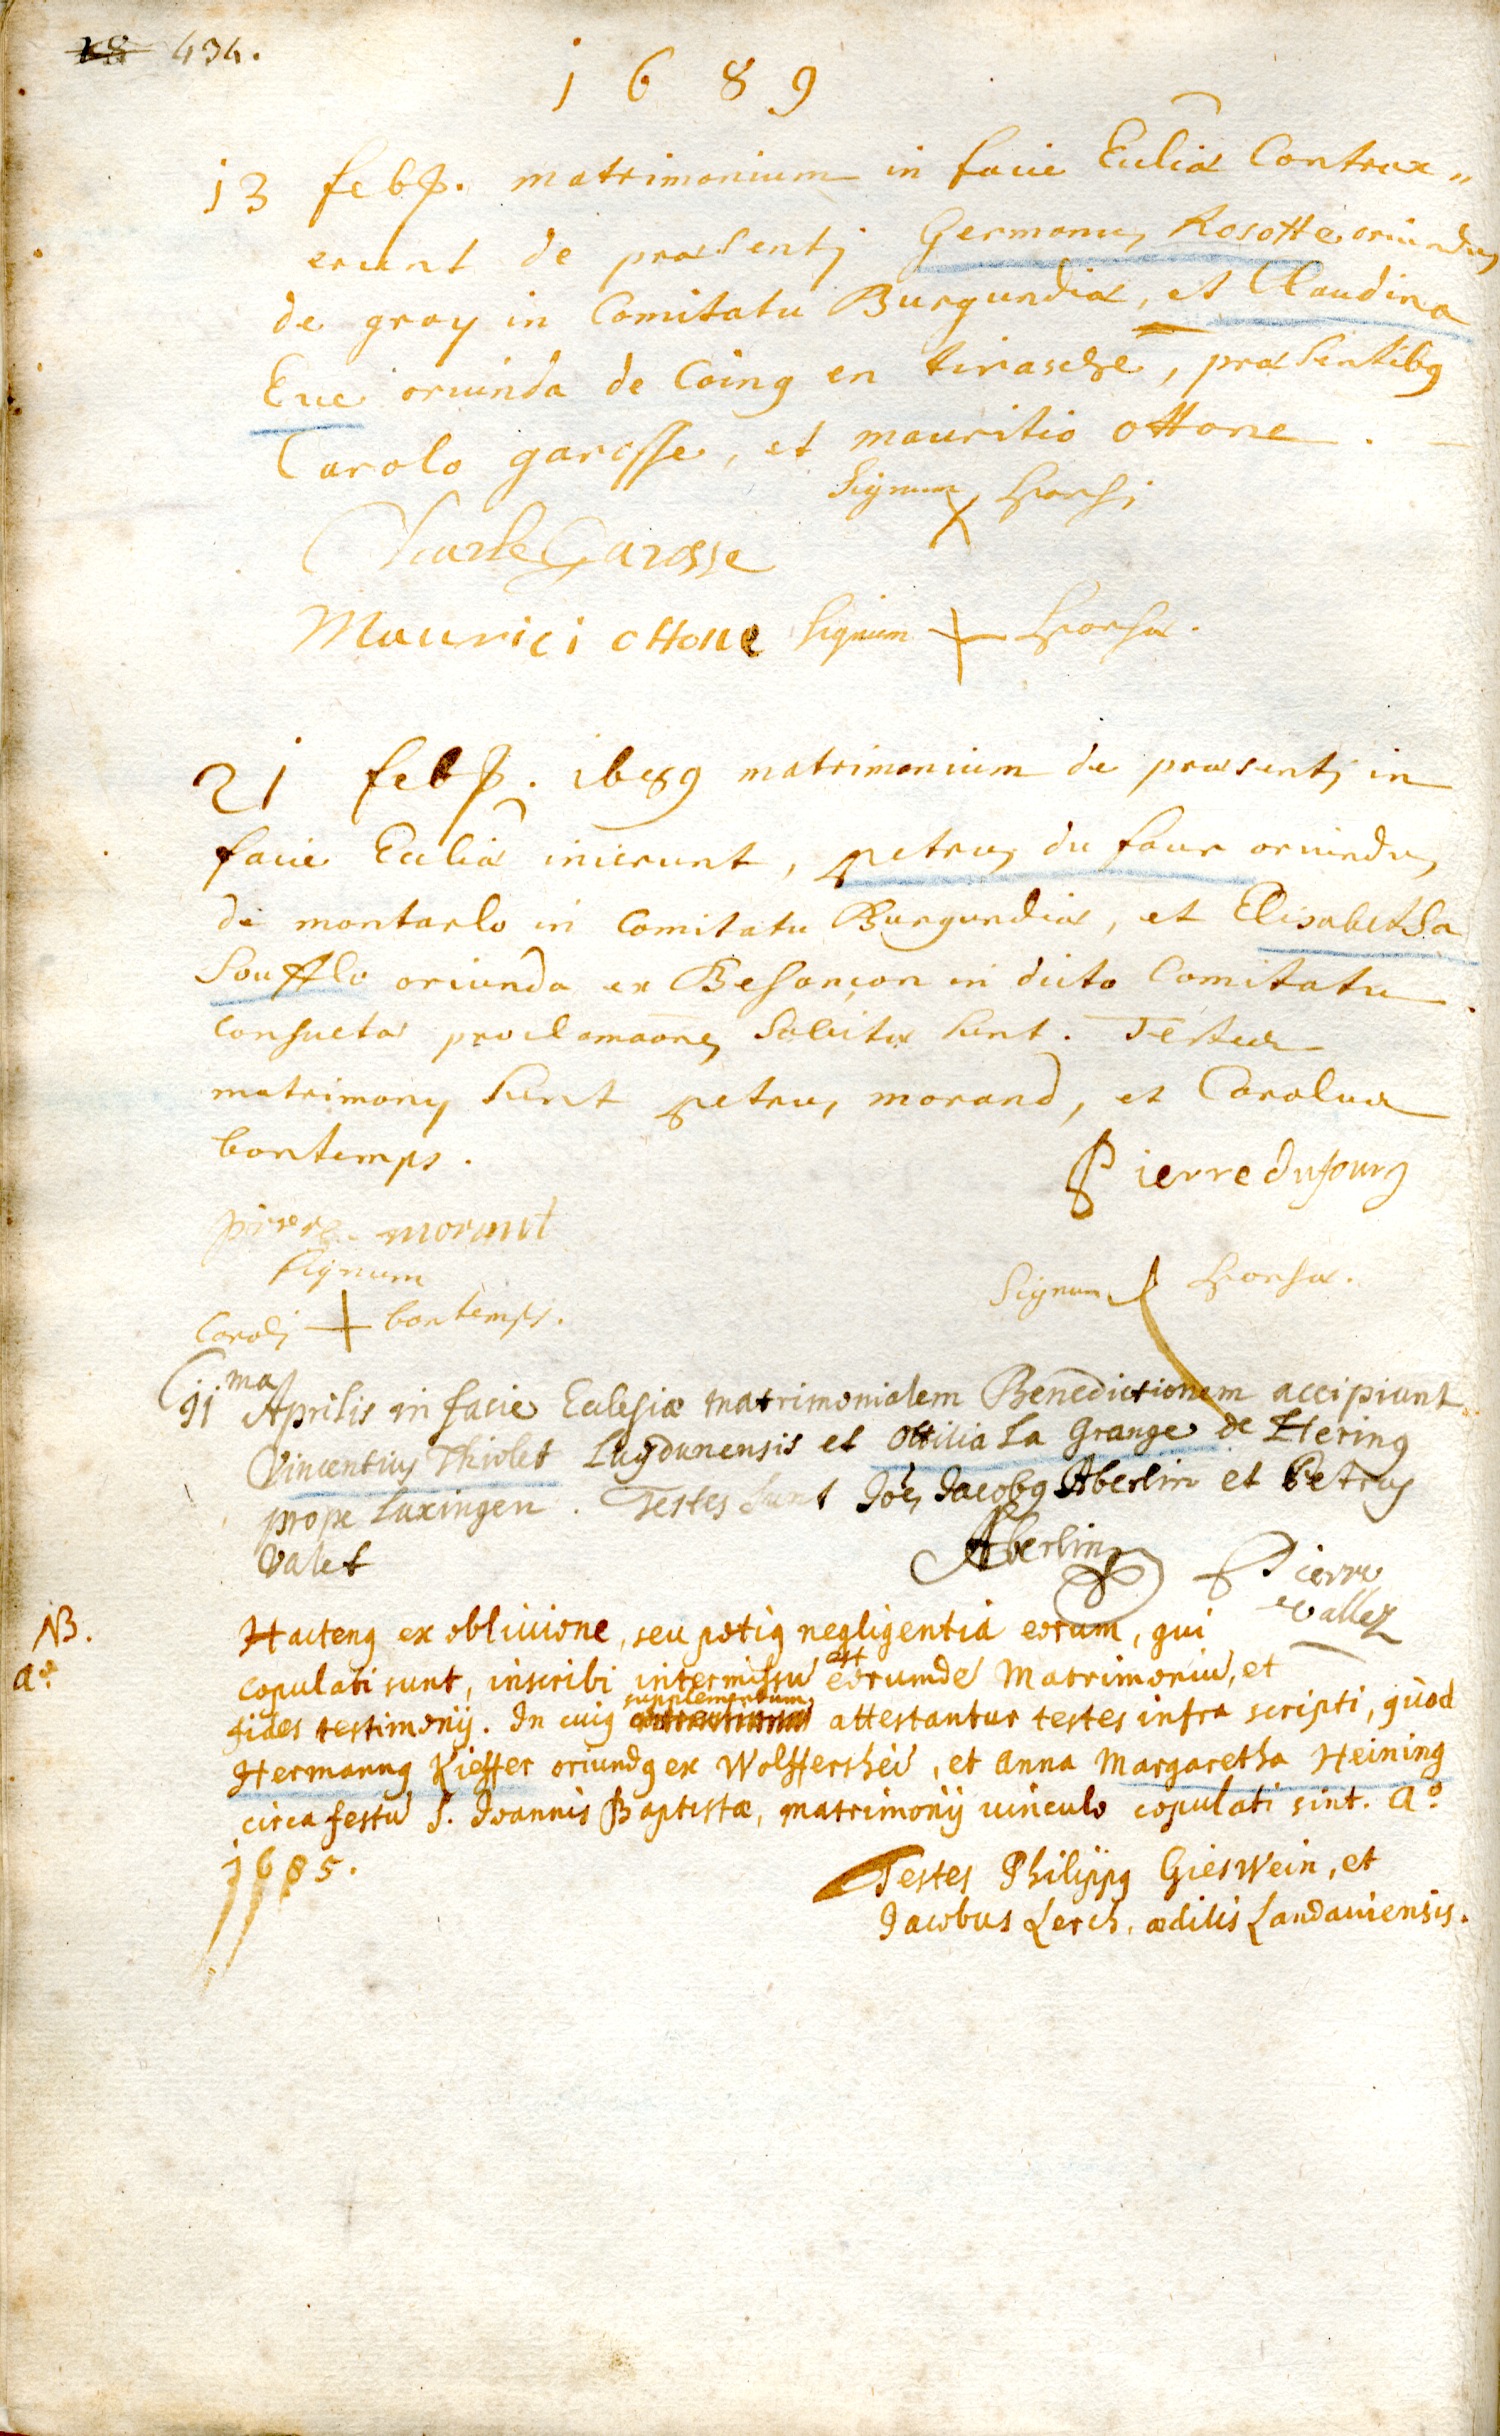 434.
1689
13 febr. matrimonium in facie Eccliæ Contrax„
erunt de præsenti Germanus Rosotte oriundus
de gray in Comitatu Burgundiæ, et Claudina
Eue oriunda de Coing en tirasche, præsentibus
Carolo garosse, et mauritio ottone.
Signum x sponsi
Charle Garosse
Maurici ottone Signum + sponsæ.
21 febr. 1689 matrimonium de præsenti in
facie Eccliæ inierunt, petrus du four oriundus
de montarlo in Comitatu Burgundiæ, et Elisabetha
Soufflo oriunda ex Besançon in dicto Comitatu
consuetæ proclamaones solitæ sunt. Testes
matrimonij sunt petrus morand, et Carolus
bontemps.
Pierre dufour
pierre morant
Signum
Caroli + bontemps.
Signum sponsæ.
11ma Aprilis in facie Ecclesiæ matrimonialem Benedictionem accipiunt
Vincentius Thiolet Lugdunensis et Ottilia La Grange de Hering
prope Luxingen. Testes sunt Joes Jacobus Aberlin et Petrus
Valet
Aberlin
Pierre
vallez
NB. Hactenus ex obliuione, seu potius negligentia eorum, qui
copulati sunt, inscribi intermissũ est eorumdẽ Matrimoniũ, et
fides testimonij. In cuius supplementum attestantur testes infra scripti, quod
Hermannus Kieffer oriundus ex Wolffersheĩ, et Anna Margaretha Heining
circa festũ S. Joannis Baptistæ, matrimonij uinculo copulati sint. Aº
1685.
Testes Philippus Gieswein, et
Jacobus Lerch, ædilis Landauiensis.